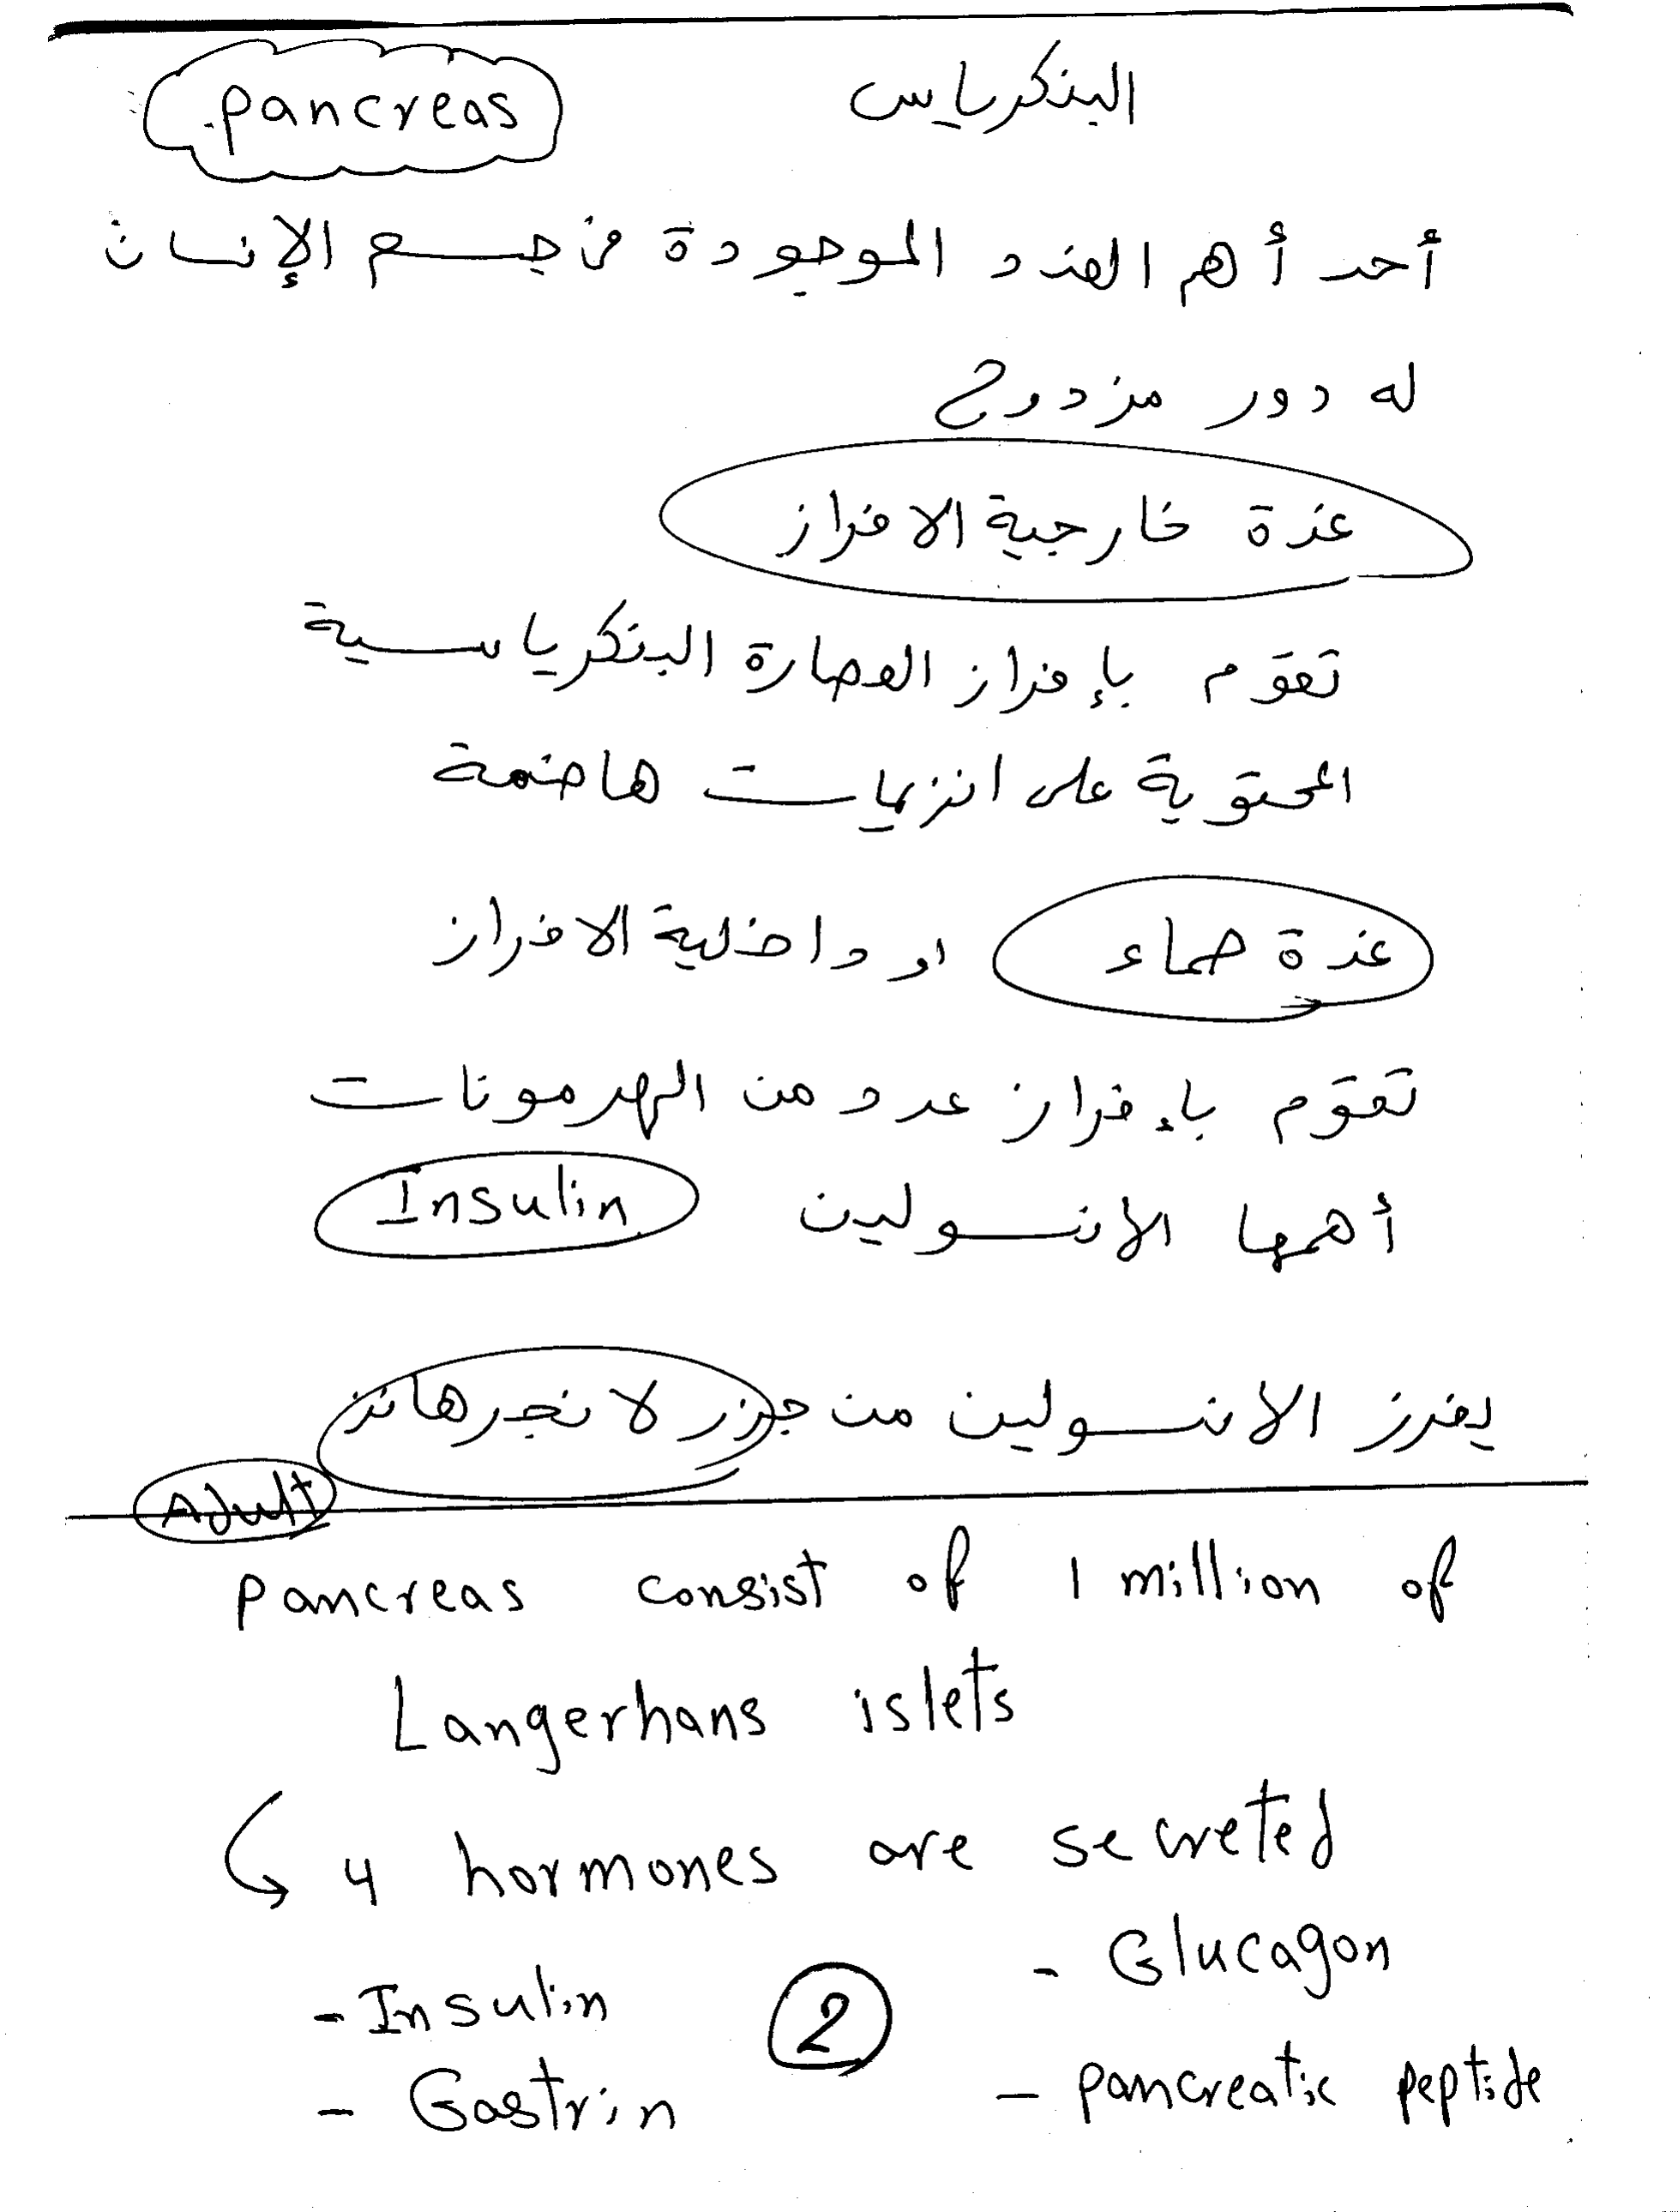 البنكرياس pancreas
أحد أهم الغدد الموجودة في جسم الإنسان
له دور مزدوج
غدة خارجية الافراز
تقوم بإفراز العصارة البنكرياسية
المحتوية على انزيمات هاضمة
غدة صماء او داخلية الافراز
تقوم بإفراز عدد من الهرمونات
أهمها الانسولين Insulin
يفرز الانسولين من جزر لانجرهانز
Adult
pancreas consist of 1 million of
Langerhans islets
4 hormones are secreted
- Insulin - Glucagon
- Gastrin - pancreatic peptide
2